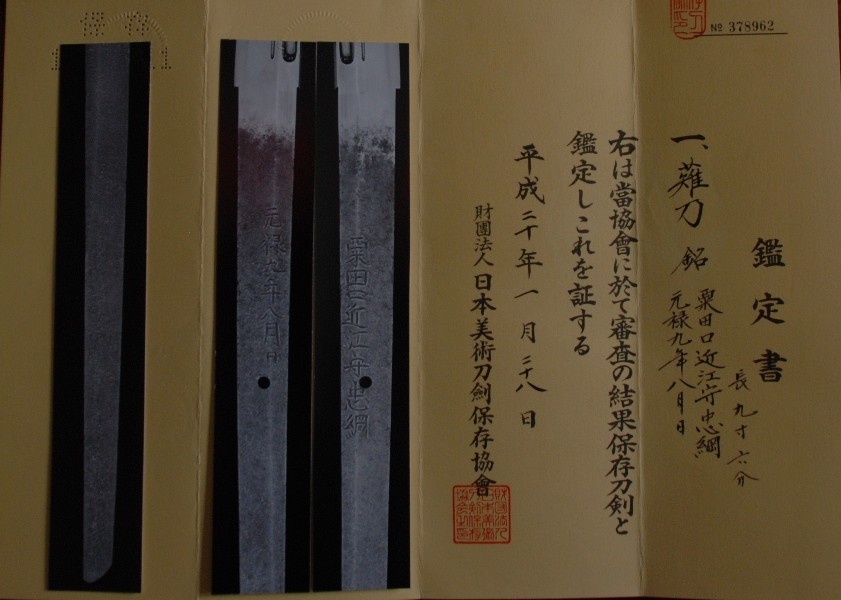 № 378962
鑑定書
一、薙刀 銘 粟田口近江守忠綱
元禄九年八月日
長九寸六分
右は當協會に於て審査の結果保存刀剣と
鑑定しこれを証する
平成二十年一月二十八日
財團法人 日本美術刀劍保存協會
粟田口近江守忠綱
元禄九年八月日
保存